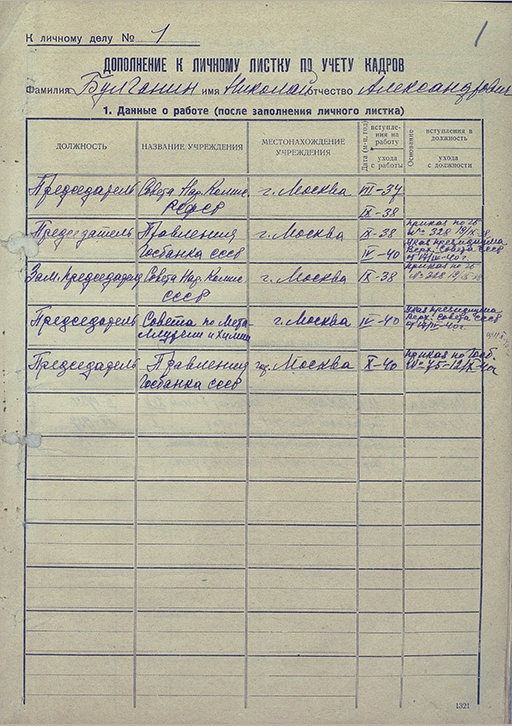 К личному делу № 1
1
ДОПОЛНЕНИЕ К ЛИЧНОМУ ЛИСТКУ ПО УЧЕТУ КАДРОВ
Фамилия Булганин имя Николай отчество Александрович
1. Данные о работе (после заполнения личного листка)
ДОЛЖНОСТЬ
НАЗВАНИЕ УЧРЕЖДЕНИЯ
МЕСТОНАХОЖДЕНИЕ УЧРЕЖДЕНИЯ
Дата (м-ц, год)
вступления на работу
ухода с работы
Основание
вступления в должность
ухода с должности
Председатель Совета Нар. Комис. г. Москва VII-37
РСФСР IX-38
Председатель Правления г. Москва IX-38 приказ по
№ 328 19/IX-38
Госбанка СССР IV-40 Указ президиума
Верх. Совета СССР
от 17/IV-40г.
Зам. председателя Совета Нар. Комис. г. Москва IX-38 приказ по
СССР
Председатель Совета по Мета- г. Москва IV-40 Указ президиума
ллургии и Химии Верх. Совета СССР
от 17/IV-40г.
Председатель Правления г. Москва X-40 приказ по Госб.
Госбанка СССР № 75-12/X-40г
1321